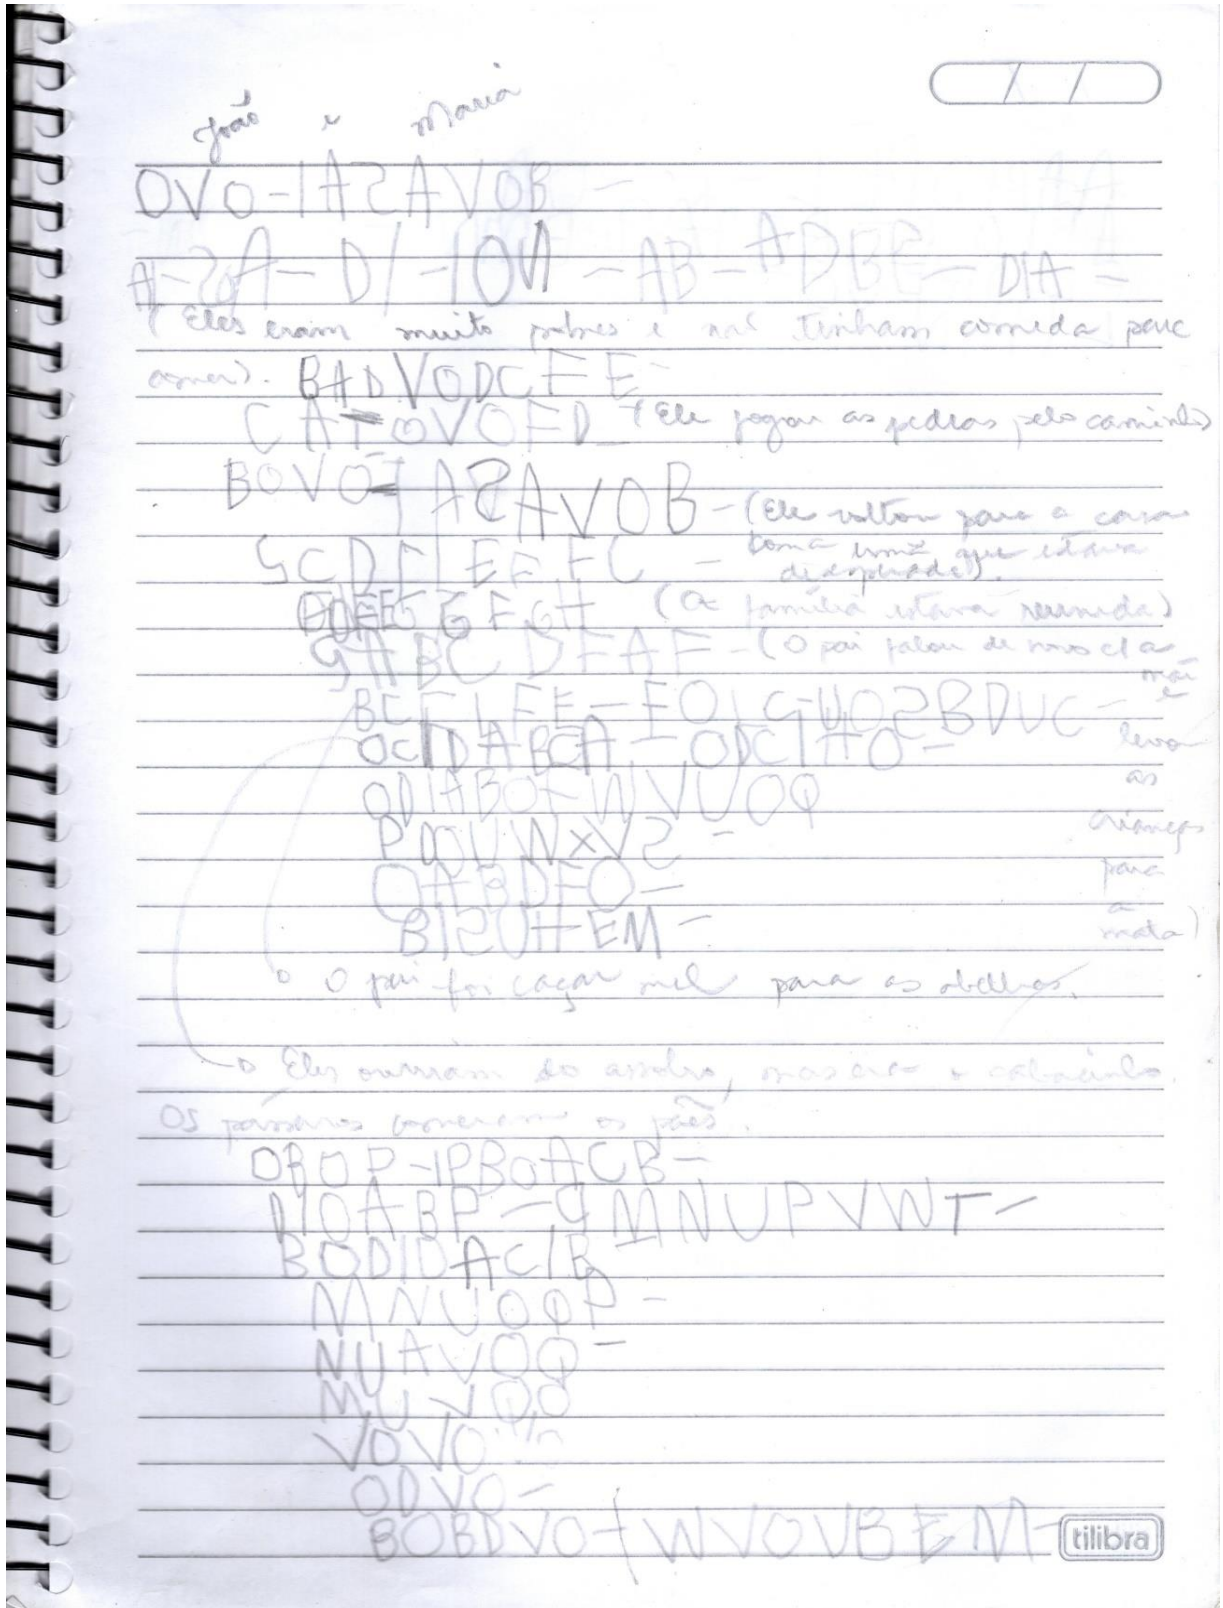 João e Maria
OVO-IASAVOB -
A-SOA-DI-ION-AB-ADBE-DIA-
(Eles eram muito pobres e não tinham comida para
comer). BADVODCFE-
CAT-OVOFD-(Ele jogou as pedras pelo caminho)
BOVO-IASAVOB-(Ele voltou para a casa
com a irmã que estava
desesperada).
SCDFIEFFC -
(a família estava reunida)
SABCDFAF-(O pai falou de novo e a
mãe
BCFIFE-FOICGUOSBDUC-
levar
OCIDABCA-ODCIAO-
as
ODIABOFWVUOQ
crianças
PDOUWXVS-
para
OABDFO-
a
BISUHEM-
mata)
O pai foi caçar mel para as abelhas.
Eles ouviram, mas era o
Os pássaros comeram os pães.
OBOP-IPBOACB-
MNUPVWT-
BODIDACIB
MNUOQP-
NUAVOQ-
MUVOQ
VOVO
ODVO-
BOBDVO-IWVOVBEM-
tilibra